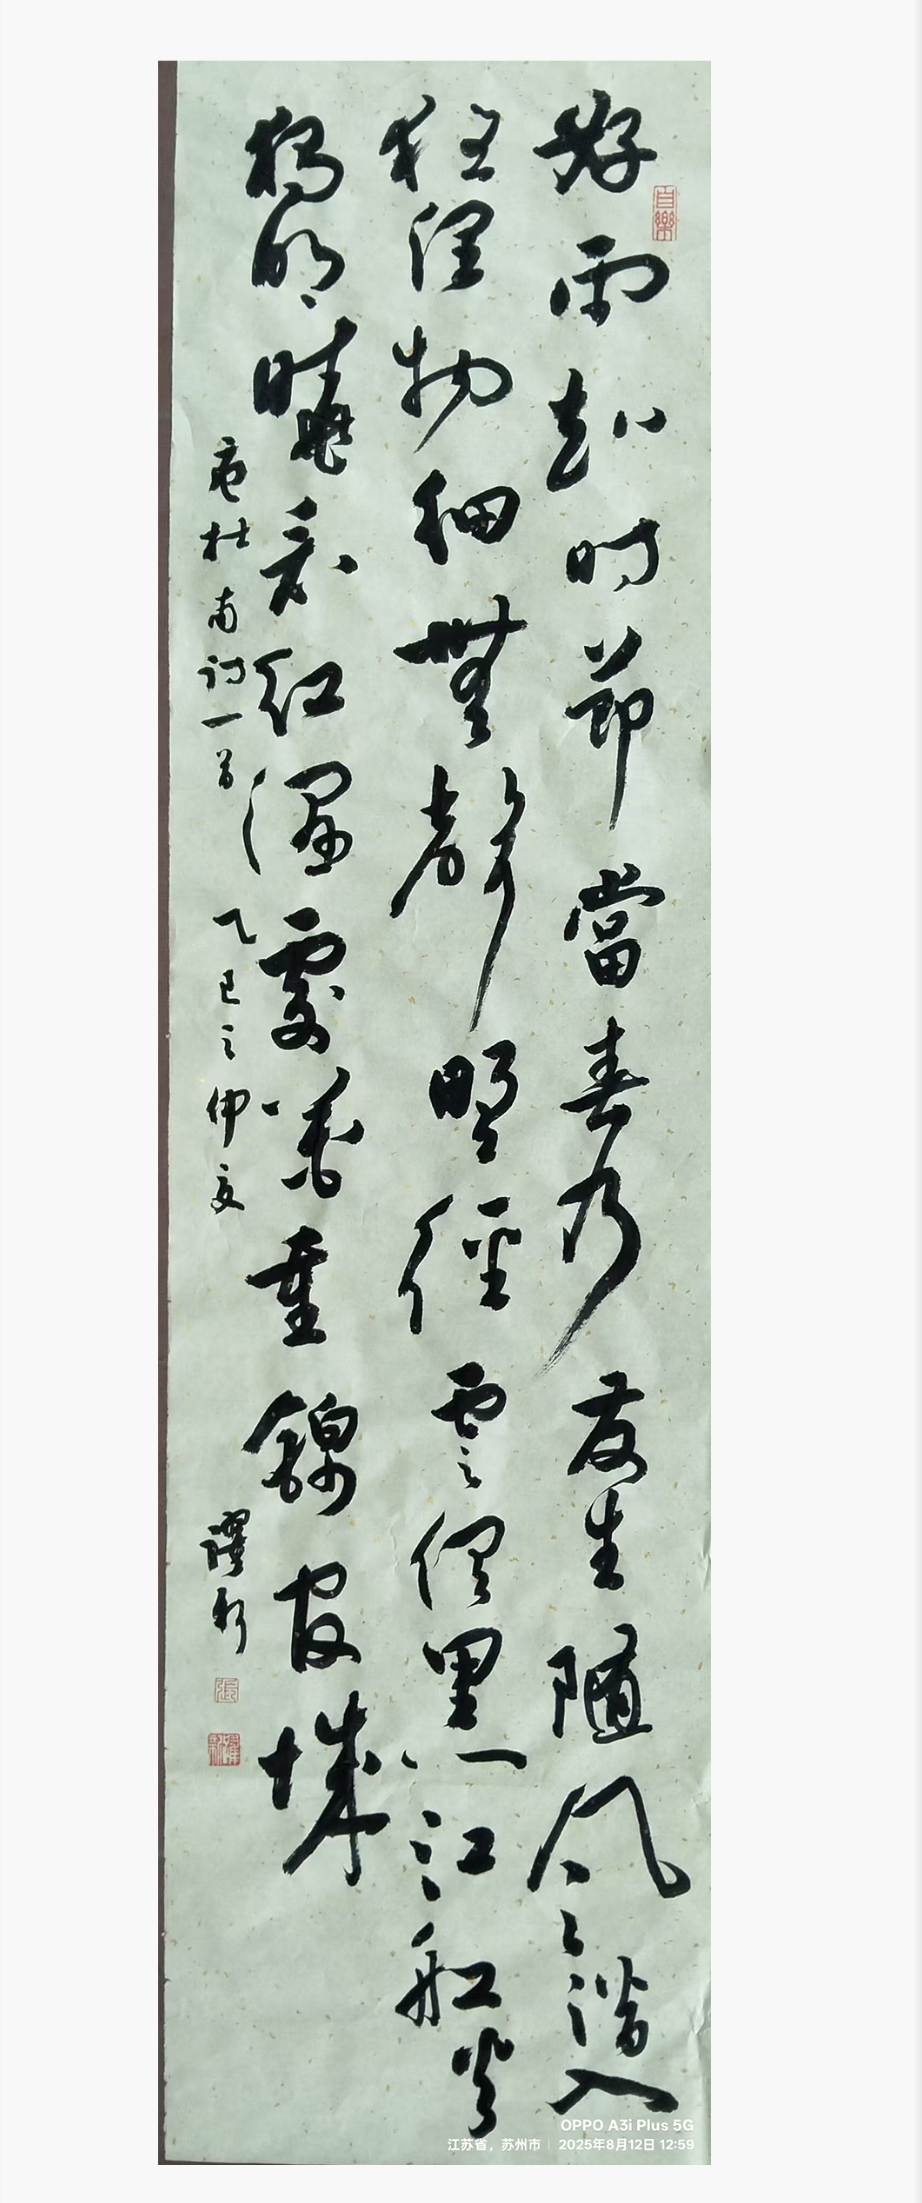 自樂
好雨知时節當春乃发生隨风潛入
夜潤物細無聲野徑雲俱黑江船火
獨明曉看紅濕處花重錦官城
唐杜甫诗一首 乙巳之仲夏
張
OPPO A3i Plus 5G
江苏省，苏州市 | 2025年8月12日 12:59